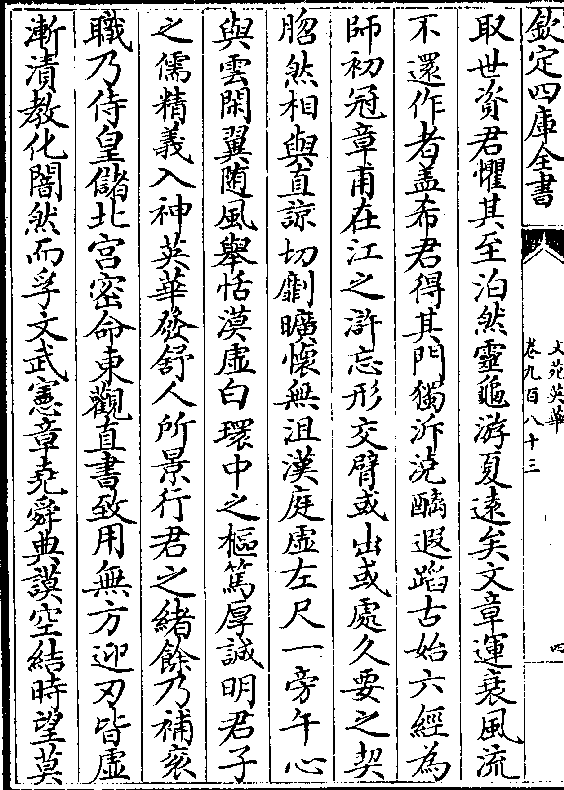 欽定四庫全書
文苑英華
卷九百八十三
四
取世資君懼其至泊然靈龜游夏遠矣文章運衰風流
不還作者盖希君得其門獨泝澆醨遐蹈古始六經為
師初冠章甫在江之滸忘形交臂或出或處久要之契
脗然相與直諒切劘曠懷無沮漢庭虛左尺一旁午心
與雲閑翼随風舉恬漠虛白環中之樞篤厚誠明君子
之儒精義入神英華發舒人所景行君之緒餘乃補衮
職乃侍皇儲北宫密命東觀直書致用無方迎刃皆虛
漸漬教化闇然而孚文武憲章堯舜典謨空結時望莫